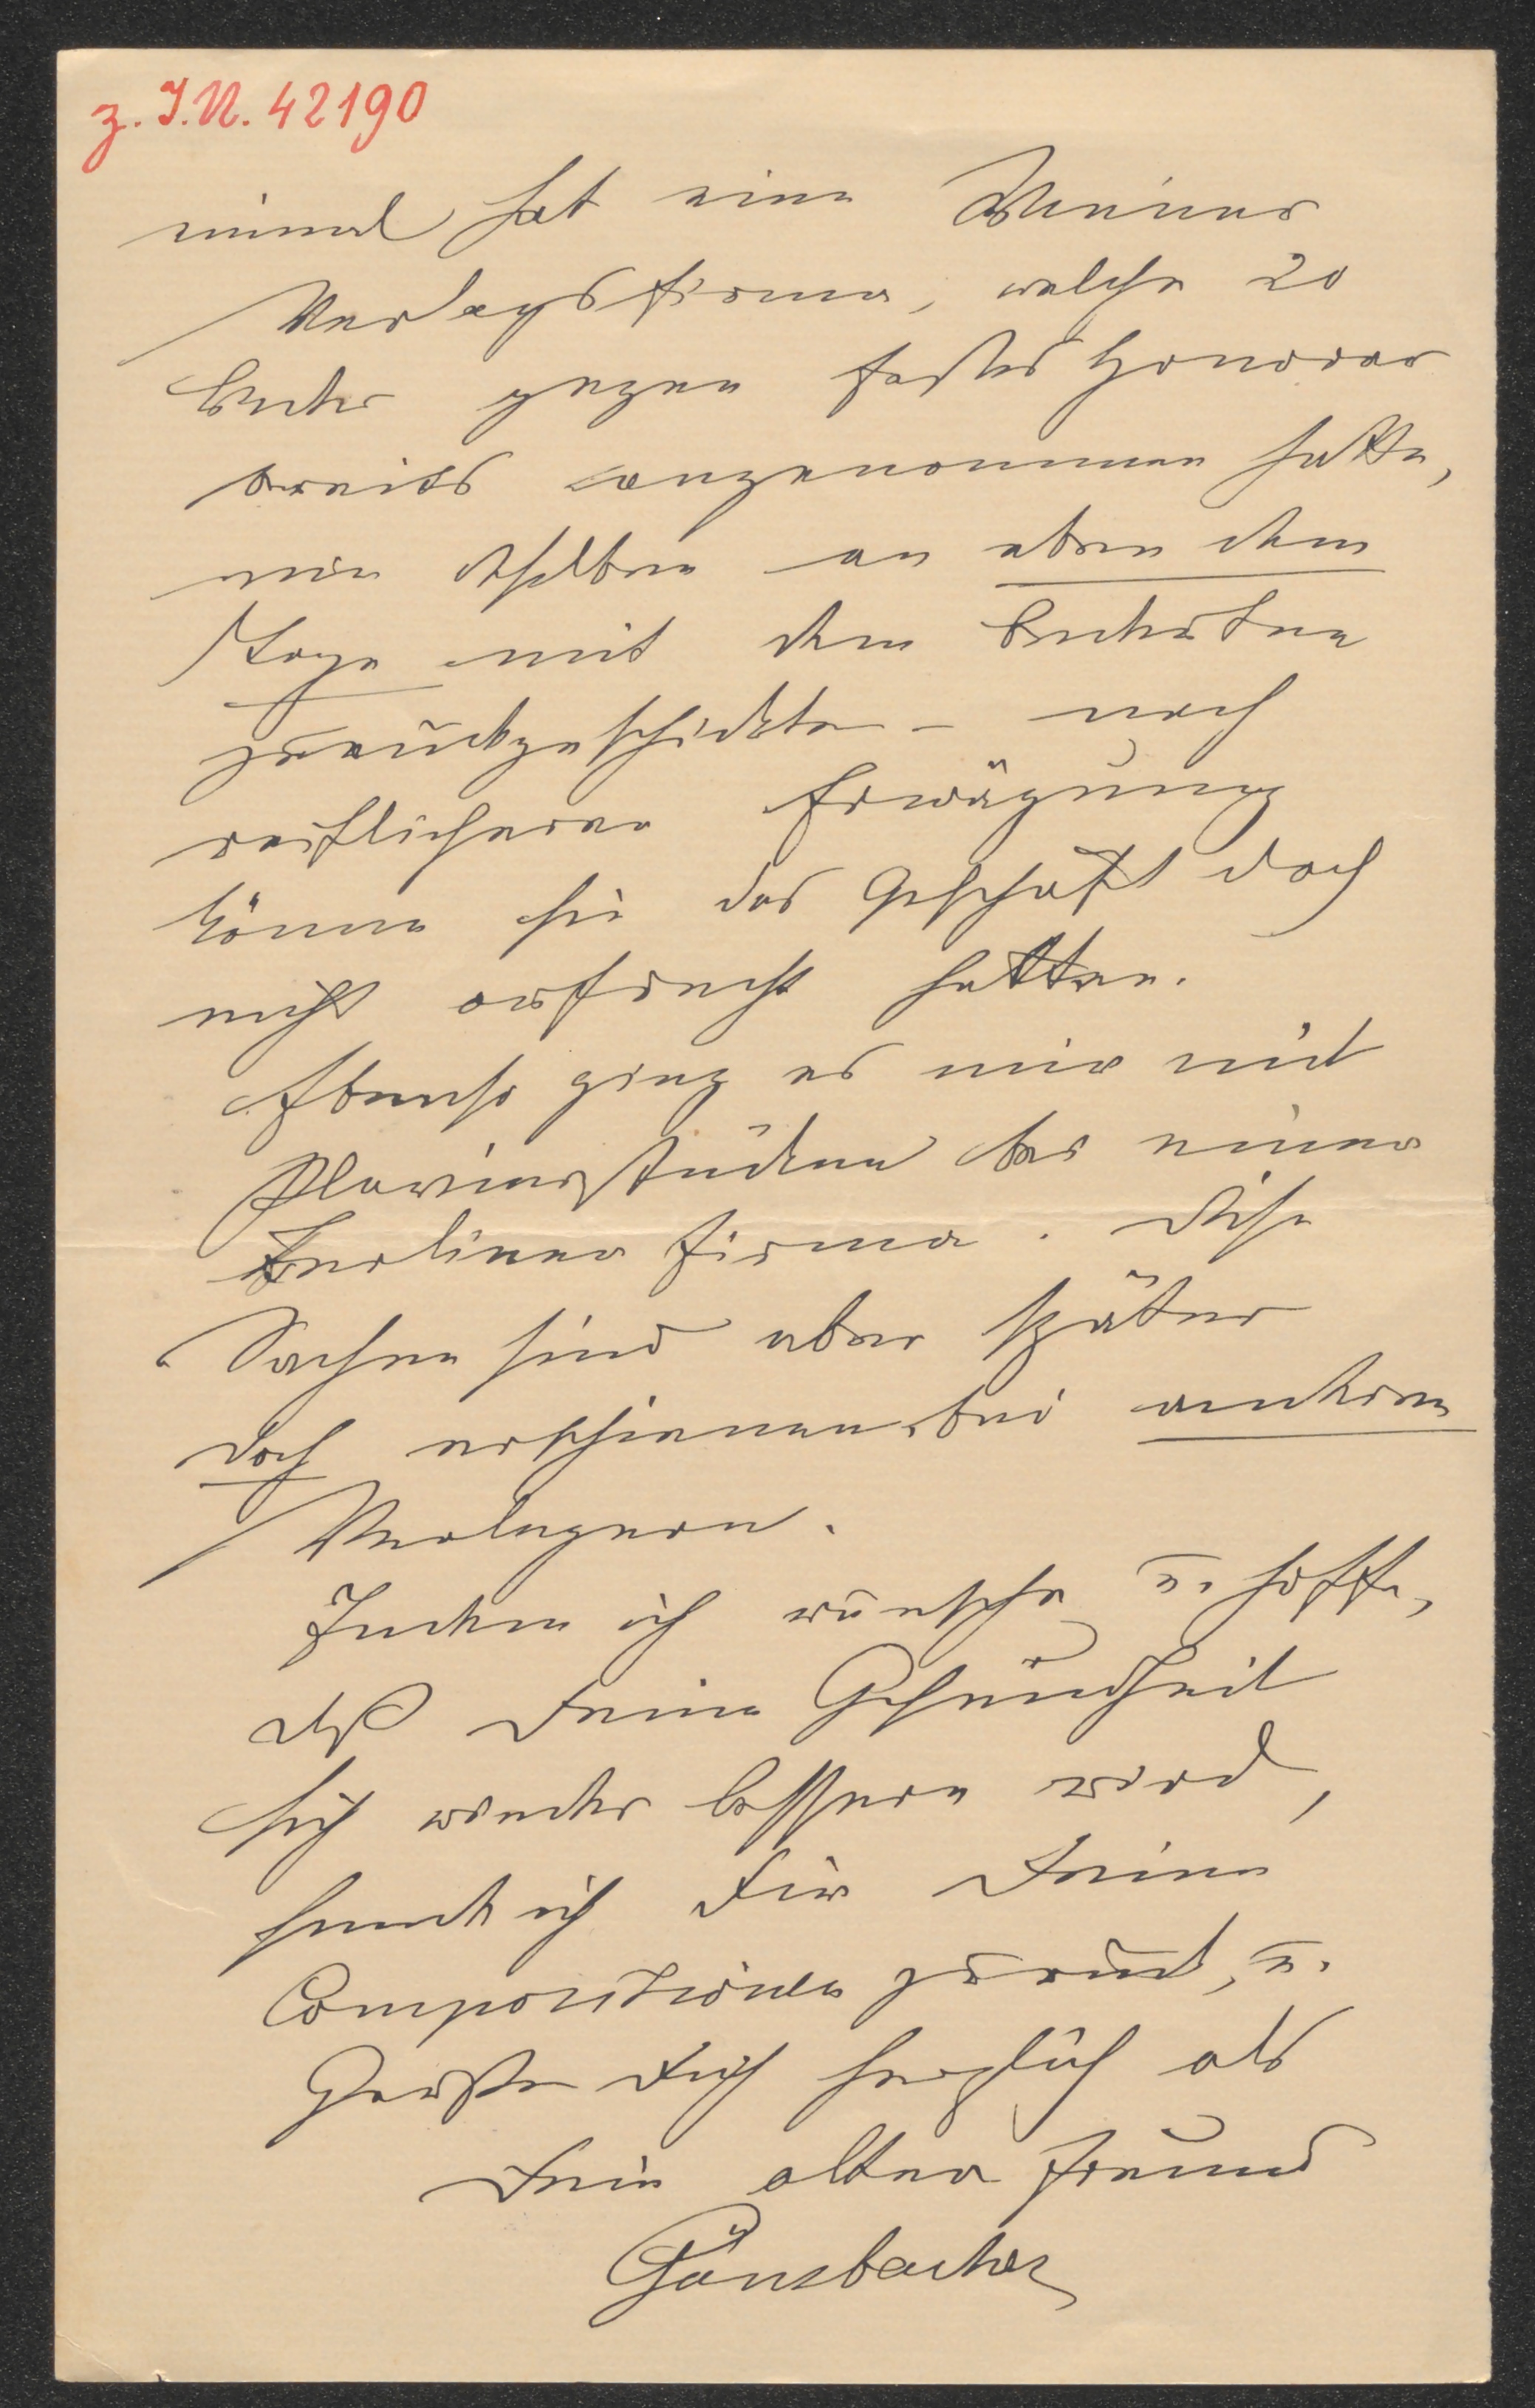 z. I.N. 42190
einmal hat eine Wiener
Verlagsfirma, welche 20
Lieder gegen festes Honorar
bereits angenommen hatte,
mir dieselben an eben dem
Tage mit dem Bedeuten
zurückgeschickt – nach
reiflicherer Erwägung
könne sie das Geschäft doch
nicht aufrecht halten.
Ebenso ging es mir mit
Clavierstücken bei einer
Berliner Firma. Diese
Sachen sind aber später
doch erschienen, bei anderen
Verlegern.
Indem ich wünsche u. hoffe,
daß Deine Gesundheit
sich wieder bessern wird,
sende ich Dir Deine
Compositionen zurück, u.
Grüße Dich herzlich als
Dein alter Freund
Gänsbacher